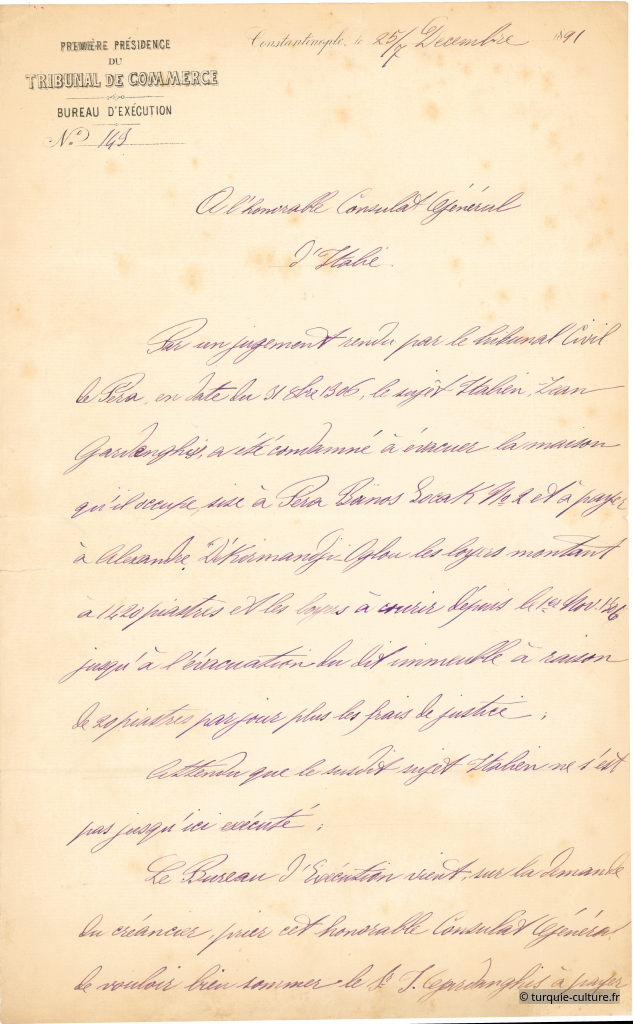 PREMIÈRE PRÉSIDENCE
DU
TRIBUNAL DE COMMERCE
BUREAU D'EXÉCUTION
No. 149
Constantinople, le 25/7 Decembre 1891
A l'honorable Consulat Général
d'Italie.
Par un jugement rendu par le tribunal Civil
de Péra, en date du 31 8bre 1306, le sujet Italien, Jean
Gardenghis, a été condamné à évacuer la maison
qu'il occupe, sise à Péra Socak No 2 et à payer
à Alexandre Dékirmandji Oglou les loyers montant
à 1420 piastres et les loyers à courir depuis le 1er Nov. 1306
jusqu'à l'évacuation du dit immeuble à raison
de 20 piastres par jour plus les frais de justice ;
Attendu que le susdit sujet Italien ne s'est
pas jusqu'ici exécuté ;
Le Bureau d'Exécution vient, sur la demande
du créancier, prier cet honorable Consulat Général
de vouloir bien sommer le Sr J. Gardenghis à payer
© turquie-culture.fr